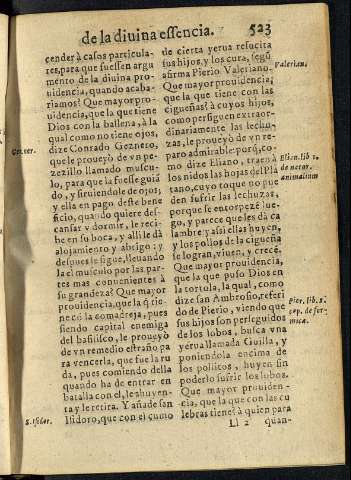 de la diuina essencia. 523
cender à casos particula-
res, para que fuessen argu
mento de la diuina pro
uidencia, quando acaba-
riamos? Que mayor pro-
uidencia, que la que tiene
Dios con la ballena, à la
qual como no tiene ojos,
dize Conrado Geznero,
que le proueyò de vn pe-
zezillo llamado muscu-
lo, para que la fuesse guiã
do, y siruiendole de ojos;
y ella en pago deste bene
ficio, quando quiere des-
cansar y dormir, le reci-
be en su boca, y alli le dà
alojamiento y abrigo; y
despues le sigue, lleuando
la el musculo por las par-
tes mas conuenientes à
su grandeza? Que mayor
prouidencia, que la q̃ tie-
ne cõ la comadreja, pues
siendo capital enemiga
del basilisco, le proueyò
de vn remedio estraño pa
ra vencerla, que fue la ru
da, pues comiendo della
quando ha de entrar en
batalla con el, le ahuyen-
ta y le retira. Y añade san
Isidoro, que con el çumo
de cierta yerua resucita
sus hijos, y los cura, segũ
afirma Pierio Valeriano.
Que mayor prouidencia;
que la que tiene con las
cigueñas? à cuyos hijos,
como persiguen extraor-
dinariamente las lechu-
zas, le proueyò de vn re-
paro admirable: porq̃, co-
mo dize Eliano, traen à
los nidos las hojas del Pla
tano, cuyo toque no pue
den sufrir las lechuzas,
porque se entorpezẽ lue-
go, y parece que les dà ca
lambre y assi ellas huyen,
y los pollos de la cigueña
se logran, viuen, y crecẽ.
Que mayor prouidencia,
que la que puso Dios en
la tortola, la qual, como
dize san Ambrosio, referi
do de Pierio, viendo que
sus hijos son perseguidos
de los lobos, busca vna
yerua llamada Guilla, y
poniendola encima de
los pollitos, huyen sin
poderlo sufrir los lobos.
Que mayor prouiden-
cia, que la que con las cu
lebras tiene? à quien para
Ll 2 quan-
S. Isidor.
Valerian.
Elian. lib 1.
de natur.
animalium
Pier. lib. 8.
cap. de for-
mica.